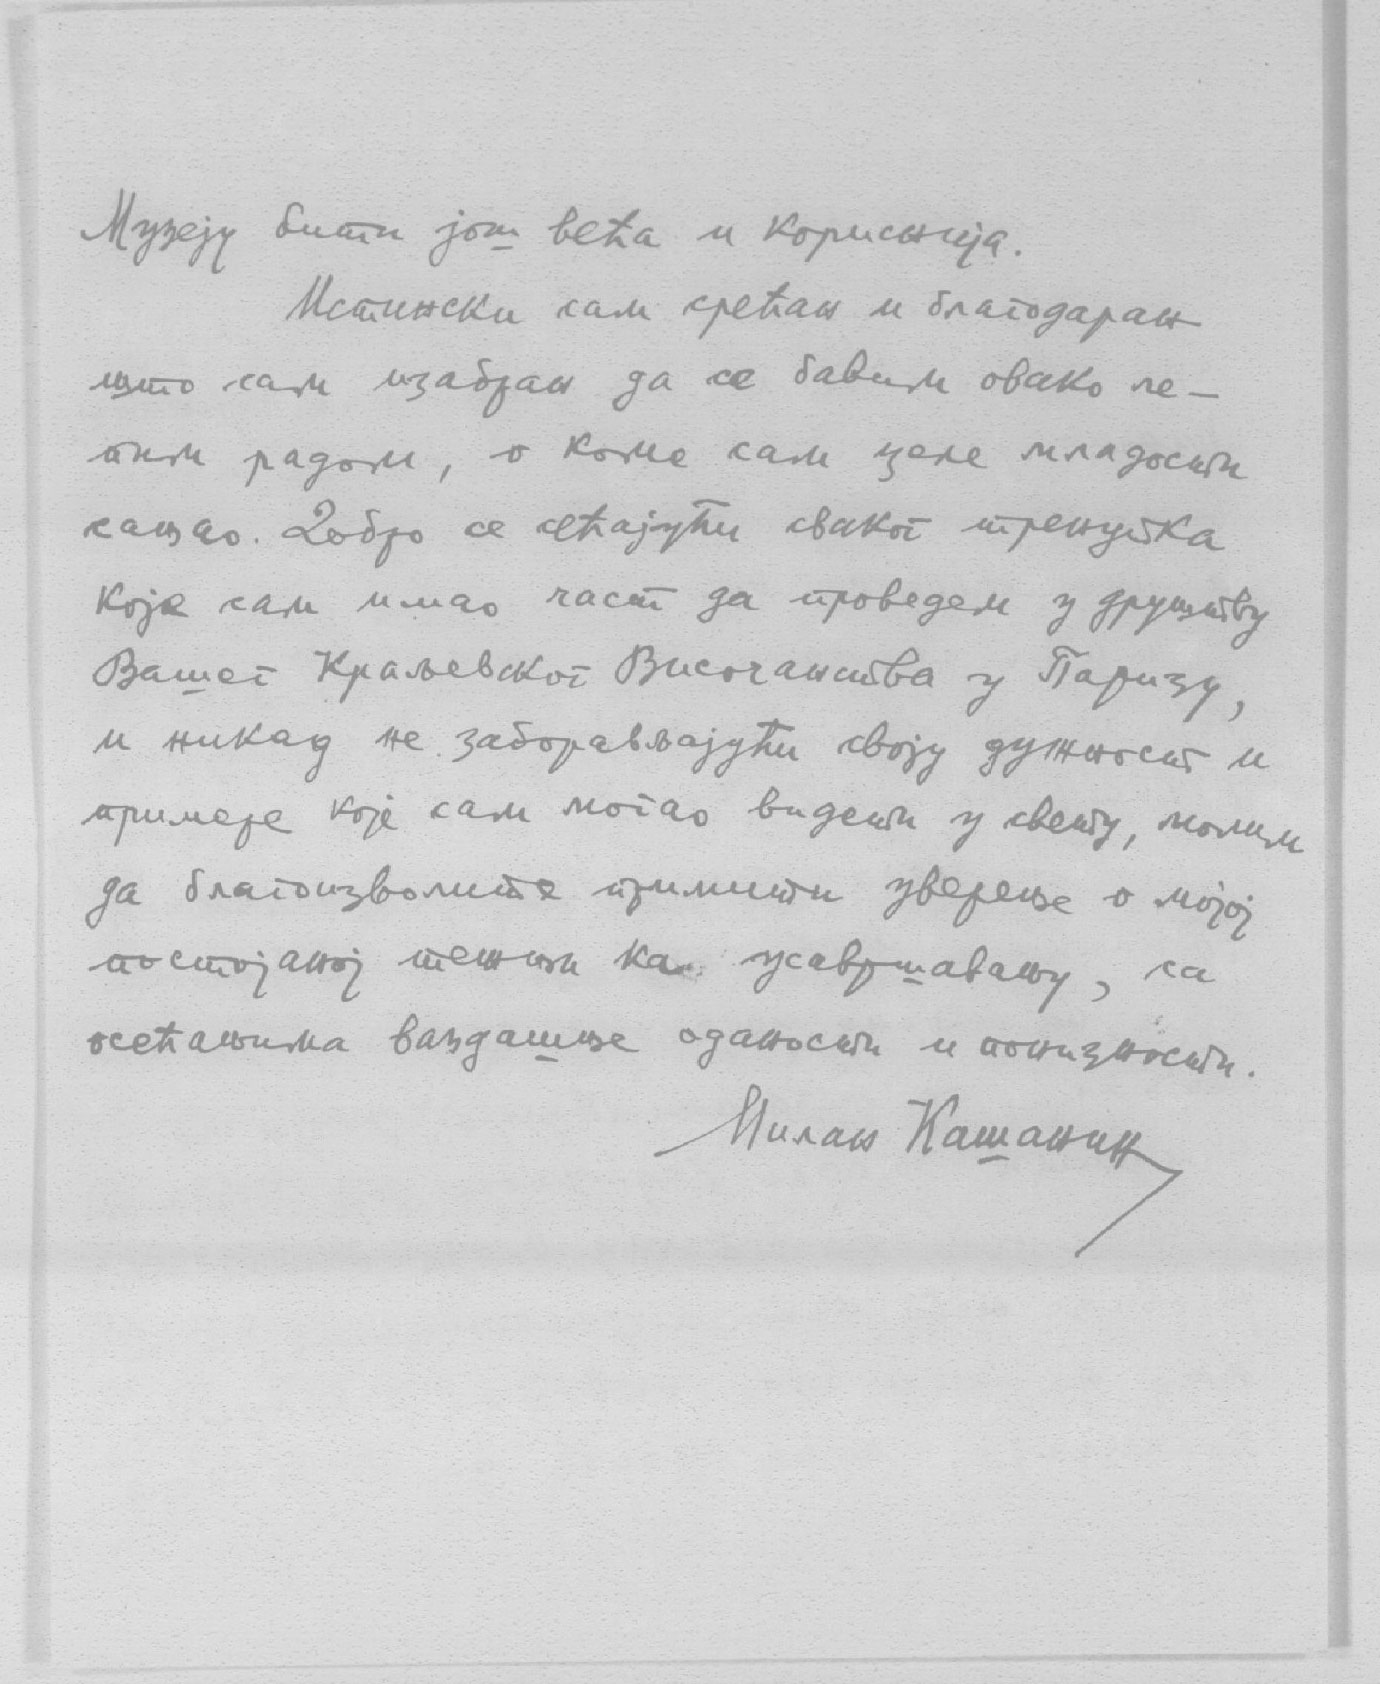 Музеју бити још већа и кориснија.
Истински сам срећан и благодаран
што сам изабран да се бавим овако ле-
пим радом, о коме сам целе младости
сањао. Добро се сећајући сваког тренутка
које сам имао част да проведем у друштву
Вашег Краљевског Височанства у Паризу,
и никад не заборављајући своју дужност и
примере које сам могао видети у свету, молим
да благоизволите примити уверење о мојој
постојаној тежњи ка усавршавању, са
осећањима ваздашње оданости и понизности.
Милан Кашанин